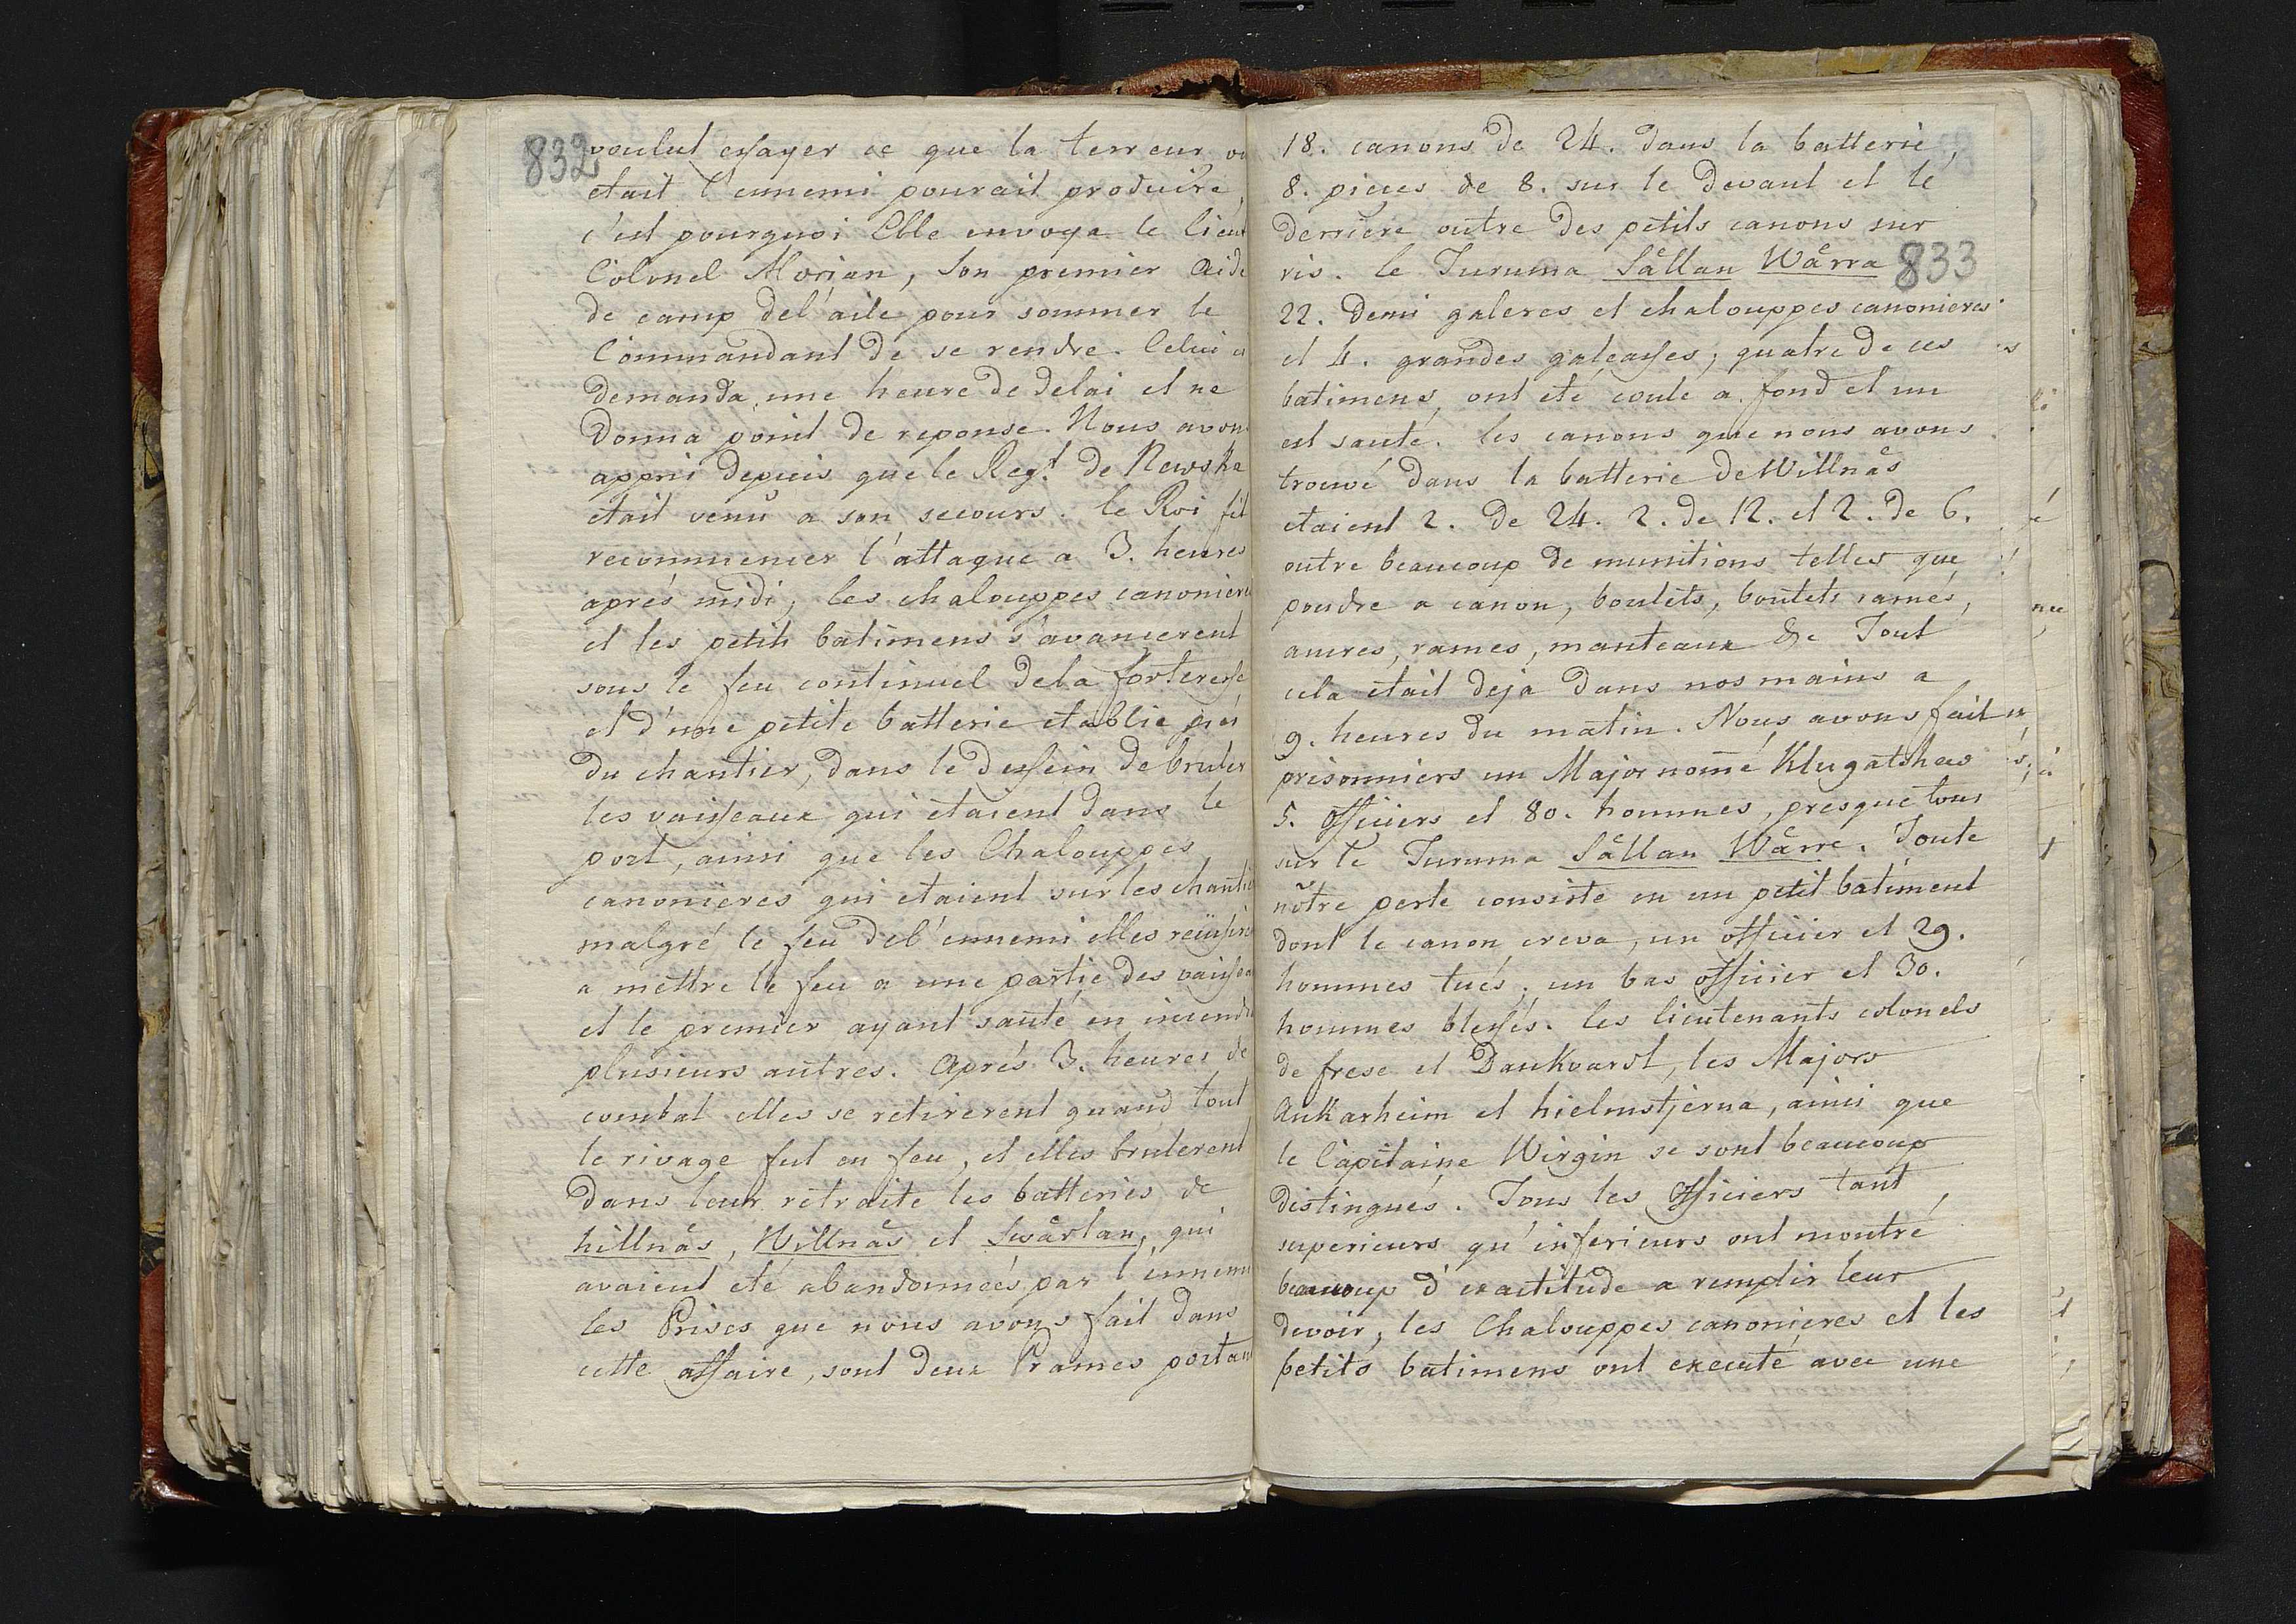 832
voulut essayer ce que la terreur ou
etait l'ennemi pourait produire,
c'est pourquoi Elle envoya le lieut
Colonel Morian, Son premier Aide
de camp del'aile pour sommer le
Commandant de se rendre. Celui ci
demanda une heure de delai et ne
donna point de reponse. Nous avons
appris depuis que le Regt. de Newska
etait venû a son secours. le Roi fit
recommencer l'attaque a 3. heures
aprés midi, les chalouppes canonieres
et les petits batimens s'avancerent
sous le feu continuel dela forteresse
et d'une petite batterie etablie prés
du chantier, dans le dessein de bruler
les vaisseaux qui etaient dans le
port, ainsi que les Chalouppes
canonieres qui etaient sur les chantie
malgré le feu del'ennemi elles reüssire
a mettre le feu a une partie des vaissea
et le premier ayant sauté en incendi
plusieurs autres. Aprés 3. heures de
combat elles se retirerent quand tout
le rivage fut en feu, et elles brulerent
dans leur retraite les batteries de
hillnås, Willnås et Swårtan, qui
avaient eté abandonneés par l'ennemi
les Prises que nous avons fait dans
cette affaire, sont deux Prames portan
18. canons de 24. dans la batterie,
8. pieces de 8. sur le devant et le
derriere outre des petits canons sur
vis. le Turuma Sållan Wårra
833
22. demi galeres et chalouppes canonieres
et 4. grandes galeasses; quatre de ces
batimens, ont eté coulé a fond et un
est sauté. les canons que nous avons
trouvé dans la batterie de Willnås
etaient 2. de 24. 2. de 12. et 2. de 6.
outre beaucoup de munitions telles que
poudre a canon, boulets, boulets ramés,
ancres, rames, manteaux &c Tout
cela etait deja dans nos mains a
9. heures du matin. Nous avons fait
prisonniers un Major nom̃é Klugatshew
5. Officiers et 80. hommes, presque tous
sur le Turuma Sållan Wårre. Toute
nôtre perte consiste en un petit batiment
dont le canon creva, un officier et 29.
hommes tués, un bas officier et 30.
hommes blessés. les lieutenants colonels
de frese et Dankvarst, les Majors
Ankarheim et hielmstjerna, ainsi que
le Capitaine Wirgin se sont beaucoup
distingués. Tous les Officiers tant
superieurs qu'inferieurs ont montré
beaucoup d'exactitude a remplir leur
devoir, les Chalouppes canonieres et les
petits batimens ont executé avec une